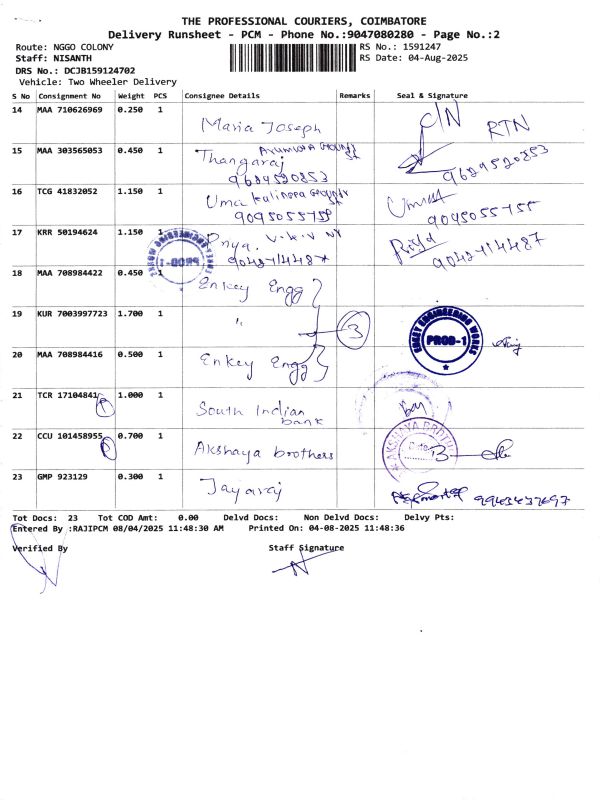 THE PROFESSIONAL COURIERS, COIMBATORE
Delivery Runsheet - PCM - Phone No.:9047080280 - Page No.:2
Route: NGGO COLONY
RS No.: 1591247
Staff: NISANTH
RS Date: 04-Aug-2025
DRS No.: DCJB159124702
Vehicle: Two Wheeler Delivery
S No Consignment No Weight PCS Consignee Details Remarks Seal & Signature
14 MAA 710626969 0.250 1
Maria Joseph
C/N RTN
15 MAA 303565053 0.450 1
Thangaraj
9629520853
9629520853
16 TCG 41832052 1.150 1
Uma
9095055755
9095055755
17 KRR 50194624 1.150 1
Priya. V.K.V
9042714487
Priya
9042714487
PROD-1
18 MAA 708984422 0.450 1
Enkey Engg
19 KUR 7003997723 1.700 1
"
3
ENKEY ENGINEERING WORKS
PROD-1
20 MAA 708984416 0.500 1
Enkey Engg
21 TCR 17104841 1.000 1
South Indian
bank
22 CCU 101458955 0.700 1
Akshaya brothers
AKSHAYA BROTH
23 GMP 923129 0.300 1
Jayaraj
Tot Docs: 23 Tot COD Amt: 0.00 Delvd Docs: Non Delvd Docs: Delvy Pts:
Entered By :RAJIPCM 08/04/2025 11:48:30 AM Printed On: 04-08-2025 11:48:36
Verified By
Staff Signature